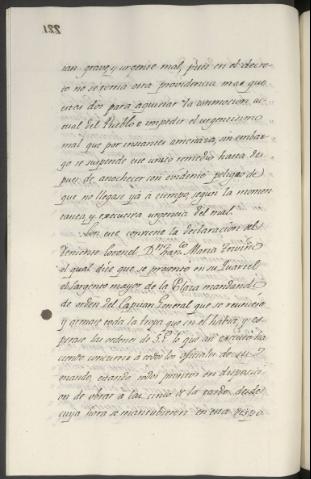 221
tan grave, y urgente mal, pues en el decre-
to no se tenia otra providencia mas que
estas dos para aquietar la conmocion ac-
tual del Pueblo e impedir el urgentisimo
mal que por instantes amenaza, sin embar-
go se suspende ese unico remedio hasta des-
pues de anochecer con evidente peligro de
que no llegase yá á tiempo, segun la momen
tanea, y executiva urgencia del mal.
Con que conviene la declaracion del
Teniente Coronel D.n Fran.co Maria
el qual dice que se presentó en su Quartel
el sargento mayor de la Plaza mandando
de orden del Capitan General que se reuniese
y armase toda la tropa que en el habia, y es-
perase las ordenes de S.E. lo que asi executó ha
ciendo concurrir á todos los oficiales de su
mando, estando todos prontos en disposici-
on de obrar á las cinco de la tarde, desde
cuya hora se mantubieron en esa